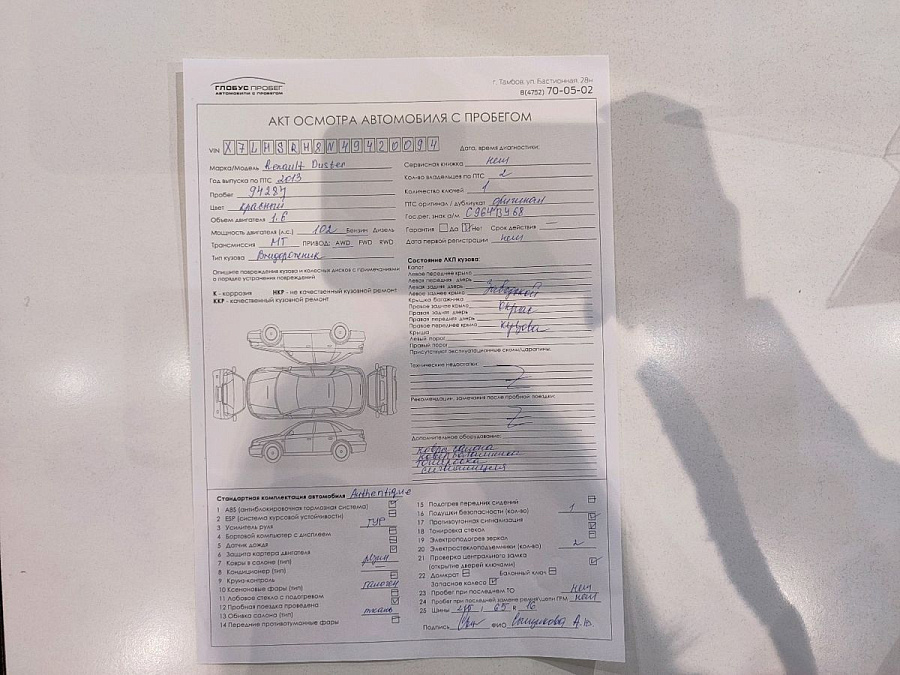 ГЛОБУС ПРОБЕГ
АВТОМОБИЛИ С ПРОБЕГОМ
г. Тамбов, ул. Бастионная, 28н
8(4752) 70-05-02
АКТ ОСМОТРА АВТОМОБИЛЯ С ПРОБЕГОМ
VIN X7LHSRH8N49420094
Марка/Модель Renault Duster
Год выпуска по ПТС 2013
Пробег 94287
Цвет красный
Объем двигателя 1.6
Мощность двигателя (л.с.) 102 Бензин Дизель
Трансмиссия МТ ПРИВОД: AWD FWD RWD
Тип кузова Внедорожник
Опишите повреждения кузова и колёсных дисков с примечаниями
о порядке устранения повреждений
К - коррозия НКР - не качественный кузовной ремонт
ККР - качественный кузовной ремонт
Дата, время диагностики:
Сервисная книжка нет
Кол-во владельцев по ПТС 2
Количество ключей 1
ПТС оригинал / дубликат оригинал
Гос.рег. знак а/м С964ВУ68
Гарантия Да Нет Срок действия
Дата первой регистрации нет
Состояние ЛКП кузова:
Капот
Левое переднее крыло
Левая передняя дверь
Левая задняя дверь
Левое заднее крыло
Крышка багажника
Правое заднее крыло
Правая задняя дверь
Правая передняя дверь
Правое переднее крыло
Крыша
Левый порог
Правый порог
окрас
кузова
Присутствуют эксплуатационные сколы/царапины:
Технические недостатки
Рекомендации, замечания после пробной поездки:
Дополнительное оборудование:
ковры салона
сигнализация
Стандартная комплектация автомобиля Authentique
1 ABS (антиблокировочная тормозная система)
2 ESP (система курсовой устойчивости)
3 Усилитель руля ГУР
4 Бортовой компьютер с дисплеем
5 Датчик дождя
6 Защита картера двигателя
7 Ковры в салоне (тип) резин
8 Кондиционер (тип)
9 Круиз-контроль
10 Ксеноновые фары (тип) галоген
11 Лобовое стекло с подогревом
12 Пробная поездка проведена
13 Обивка салона (тип) ткань
14 Передние противотуманные фары
15 Подогрев передних сидений
16 Подушки безопасности (кол-во) 1
17 Противоугонная сигнализация
18 Тонировка стекол
19 Электроподогрев зеркал
20 Электростеклоподъемники (кол-во) 2
21 Проверка центрального замка
(открытие дверей ключами)
22 Домкрат Балонный ключ
Запасное колесо
23 Пробег при последнем ТО нет
24 Пробег при последней замене ремня/цепи ГРМ нет
25 Шины 215 / 65 R 16
Подпись ФИО